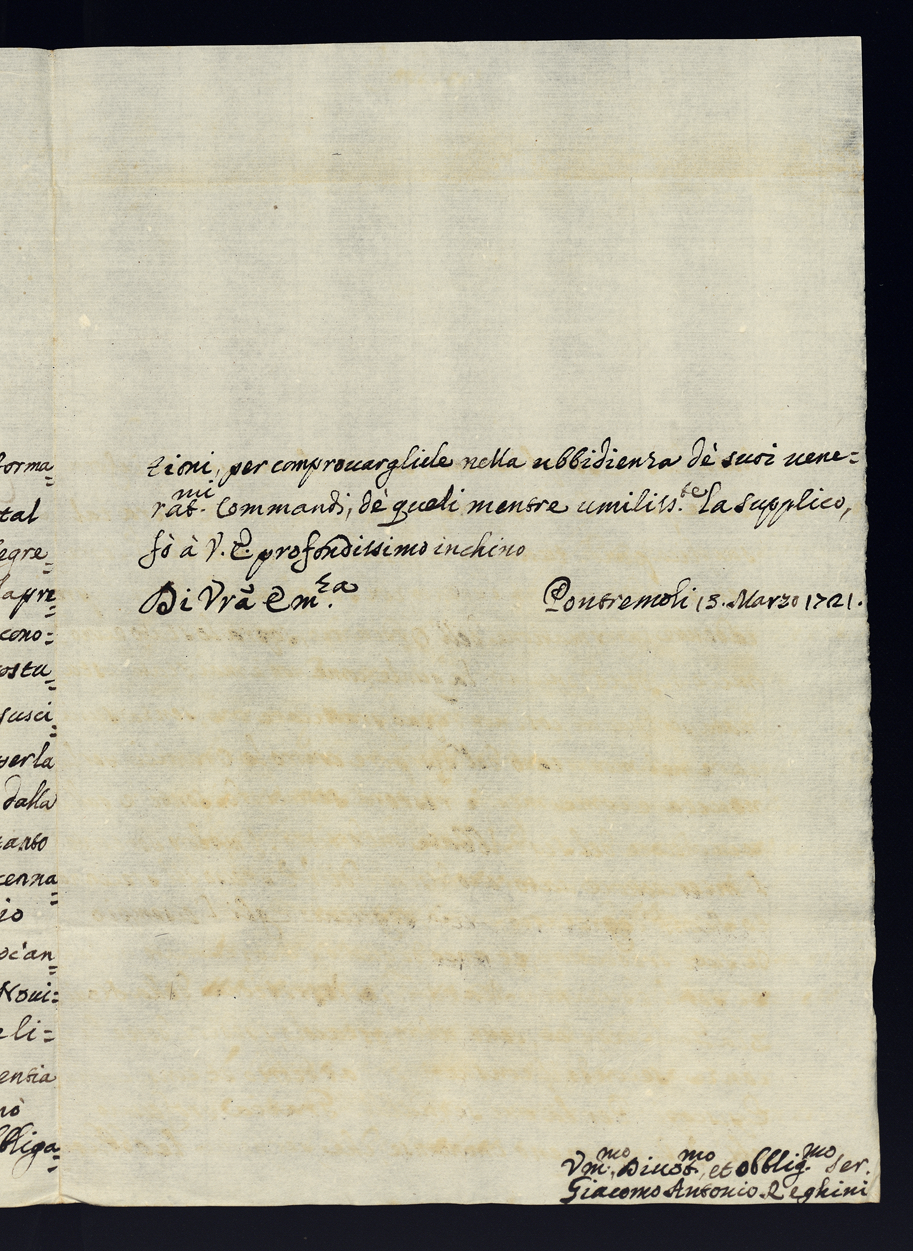 forma=
tal
segre=
lapre=
cono=
ostu=
susci=
per la
dalla
tanto
cenna=
io
anc'an=
Noui=
eli=
entia
nò
bliga=
tioni, per comprouargliele nella ubbidienza dè suoi uene=
rat.ⁿⁱ Commandi, dè queli mentre umiliss.ᵗᵉ la supplico,
fò à V. E. profondissimo inchino
Di Vrã Em.ᶻᵃ Pontremoli 13. Marzo 1721.
Vm.ᵐᵒ, Diuot.ᵐᵒ, et obblig.ᵐᵒ ser.
Giacomo Antonio Reghini